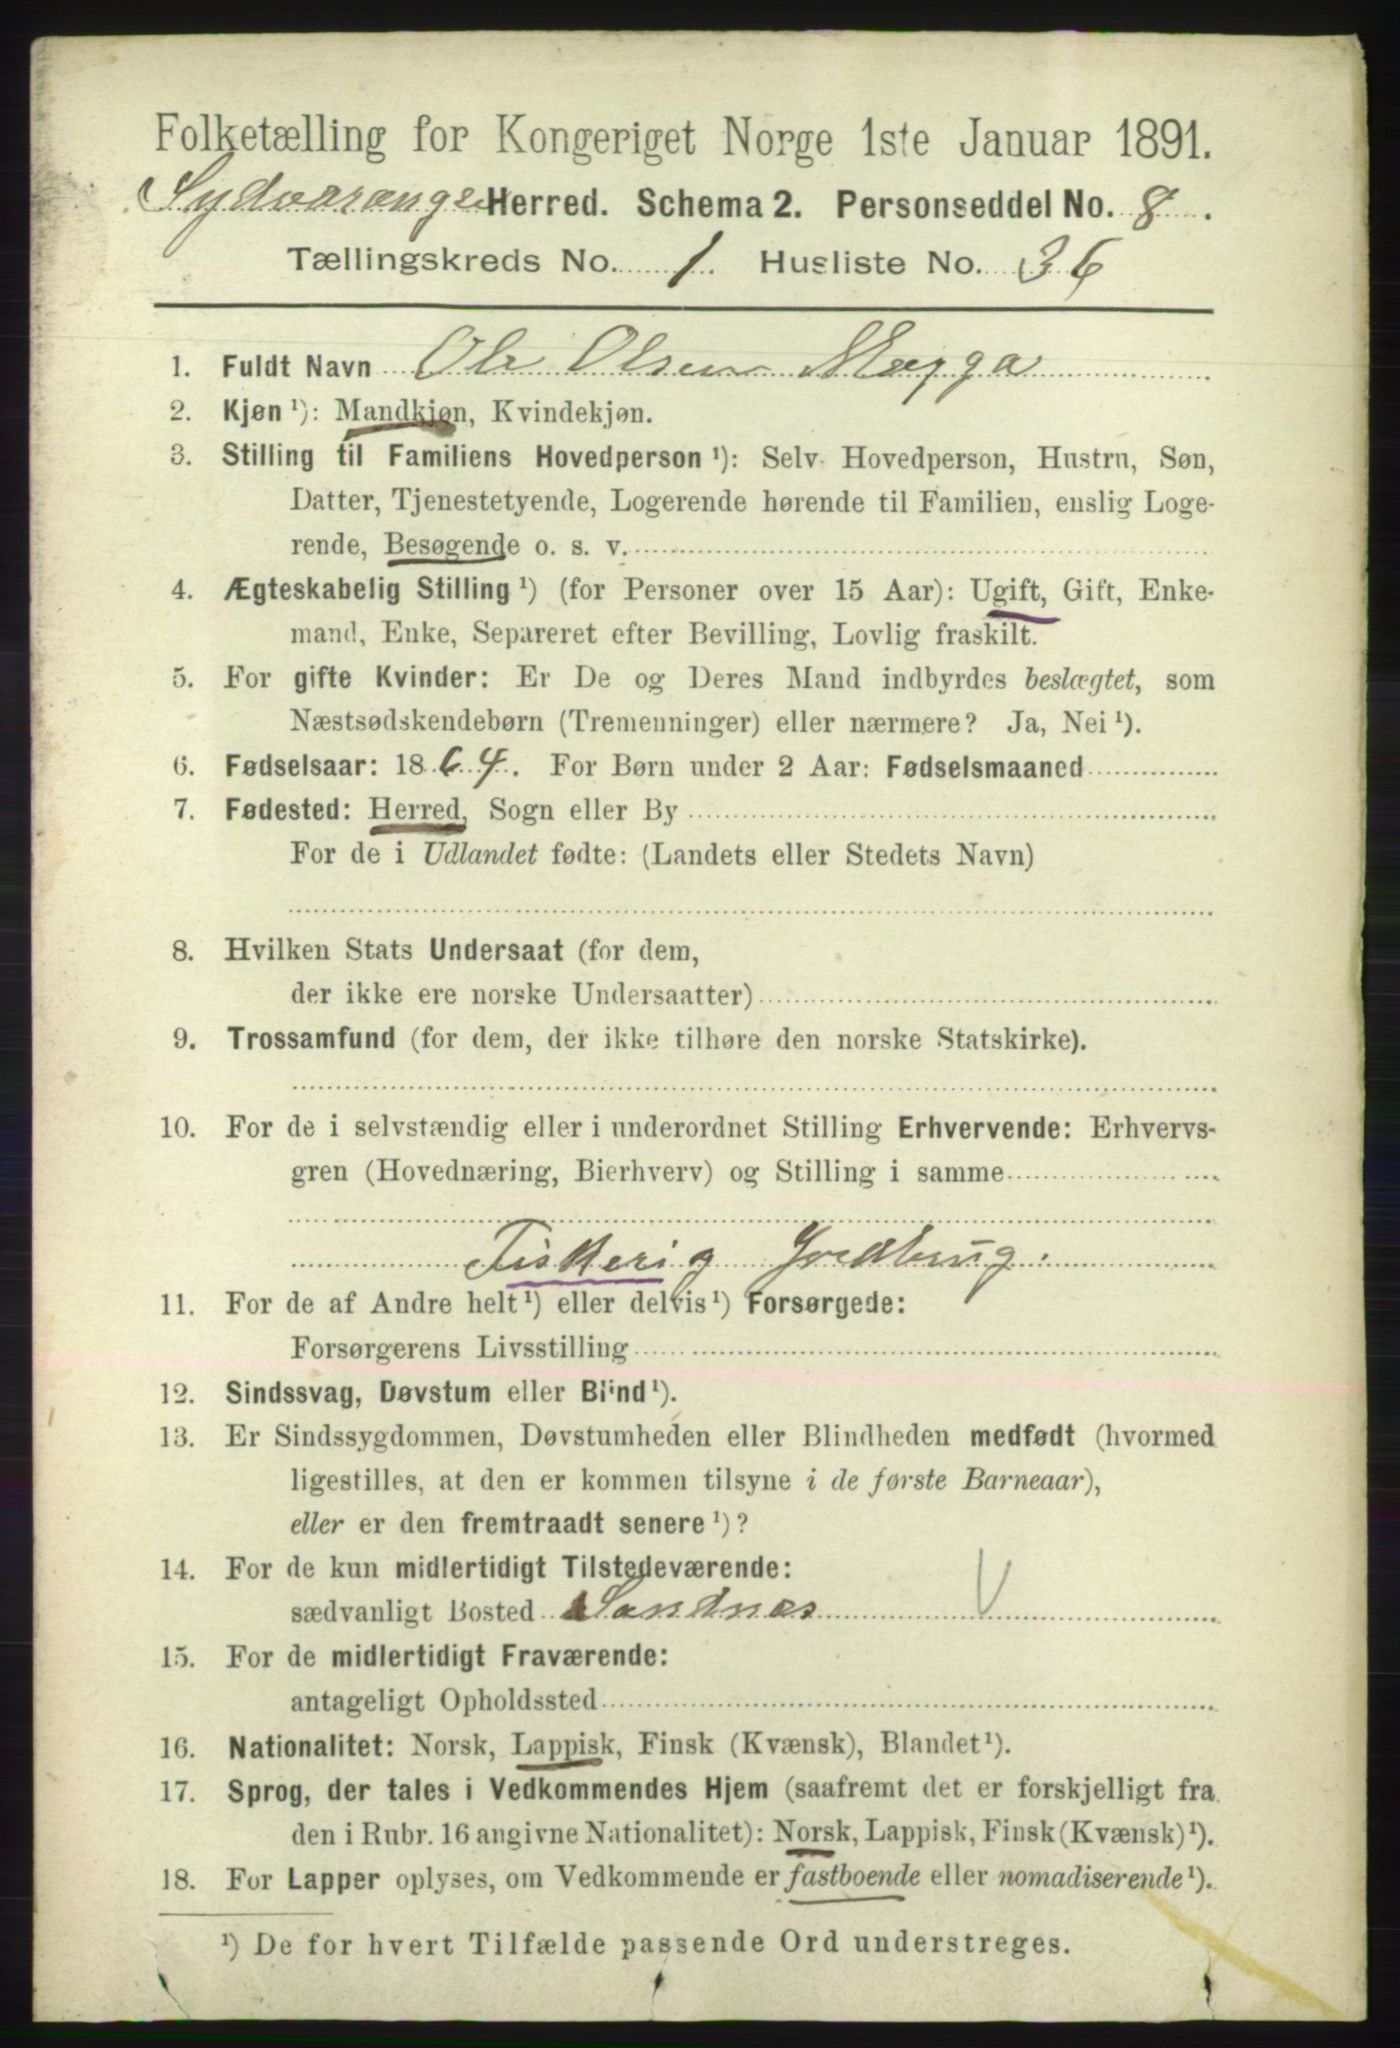 Folketælling for Kongeriget Norge 1ste Januar 1891.
Sydvaranger Herred. Schema 2. Personseddel No. 8.
Tællingskreds No. 1. Husliste No. 36
1. Fuldt Navn Ole Olsen Magga
2. Kjøn ¹): Mandkjøn, Kvindekjøn.
3. Stilling til Familiens Hovedperson ¹): Selv Hovedperson, Hustru, Søn,
Datter, Tjenestetyende, Logerende hørende til Familien, enslig Loge-
rende, Besøgende o. s. v.
4. Ægteskabelig Stilling ¹) (for Personer over 15 Aar): Ugift, Gift, Enke-
mand, Enke, Separeret efter Bevilling, Lovlig fraskilt.
5. For gifte Kvinder: Er De og Deres Mand indbyrdes beslægtet, som
Næstsødskendebørn (Tremenninger) eller nærmere? Ja, Nei ¹).
6. Fødselsaar: 1864. For Børn under 2 Aar: Fødselsmaaned
7. Fødested: Herred, Sogn eller By
For de i Udlandet fødte: (Landets eller Stedets Navn)
8. Hvilken Stats Undersaat (for dem,
der ikke ere norske Undersaatter)
9. Trossamfund (for dem, der ikke tilhøre den norske Statskirke).
10. For de i selvstændig eller i underordnet Stilling Erhvervende: Erhvervs-
gren (Hovednæring, Bierhverv) og Stilling i samme
Fiskeri g Jordbrug.
11. For de af Andre helt ¹) eller delvis ¹) Forsørgede:
Forsørgerens Livsstilling
12. Sindssvag, Døvstum eller Blind ¹).
13. Er Sindssygdommen, Døvstumheden eller Blindheden medfødt (hvormed
ligestilles, at den er kommen tilsyne i de første Barneaar),
eller er den fremtraadt senere ¹)?
14. For de kun midlertidigt Tilstedeværende:
sædvanligt Bosted Sandnes V
15. For de midlertidigt Fraværende:
antageligt Opholdssted
16. Nationalitet: Norsk, Lappisk, Finsk (Kvænsk), Blandet ¹).
17. Sprog, der tales i Vedkommendes Hjem (saafremt det er forskjelligt fra
den i Rubr. 16 angivne Nationalitet): Norsk, Lappisk, Finsk (Kvænsk) ¹).
18. For Lapper oplyses, om Vedkommende er fastboende eller nomadiserende ¹).
¹) De for hvert Tilfælde passende Ord understreges.